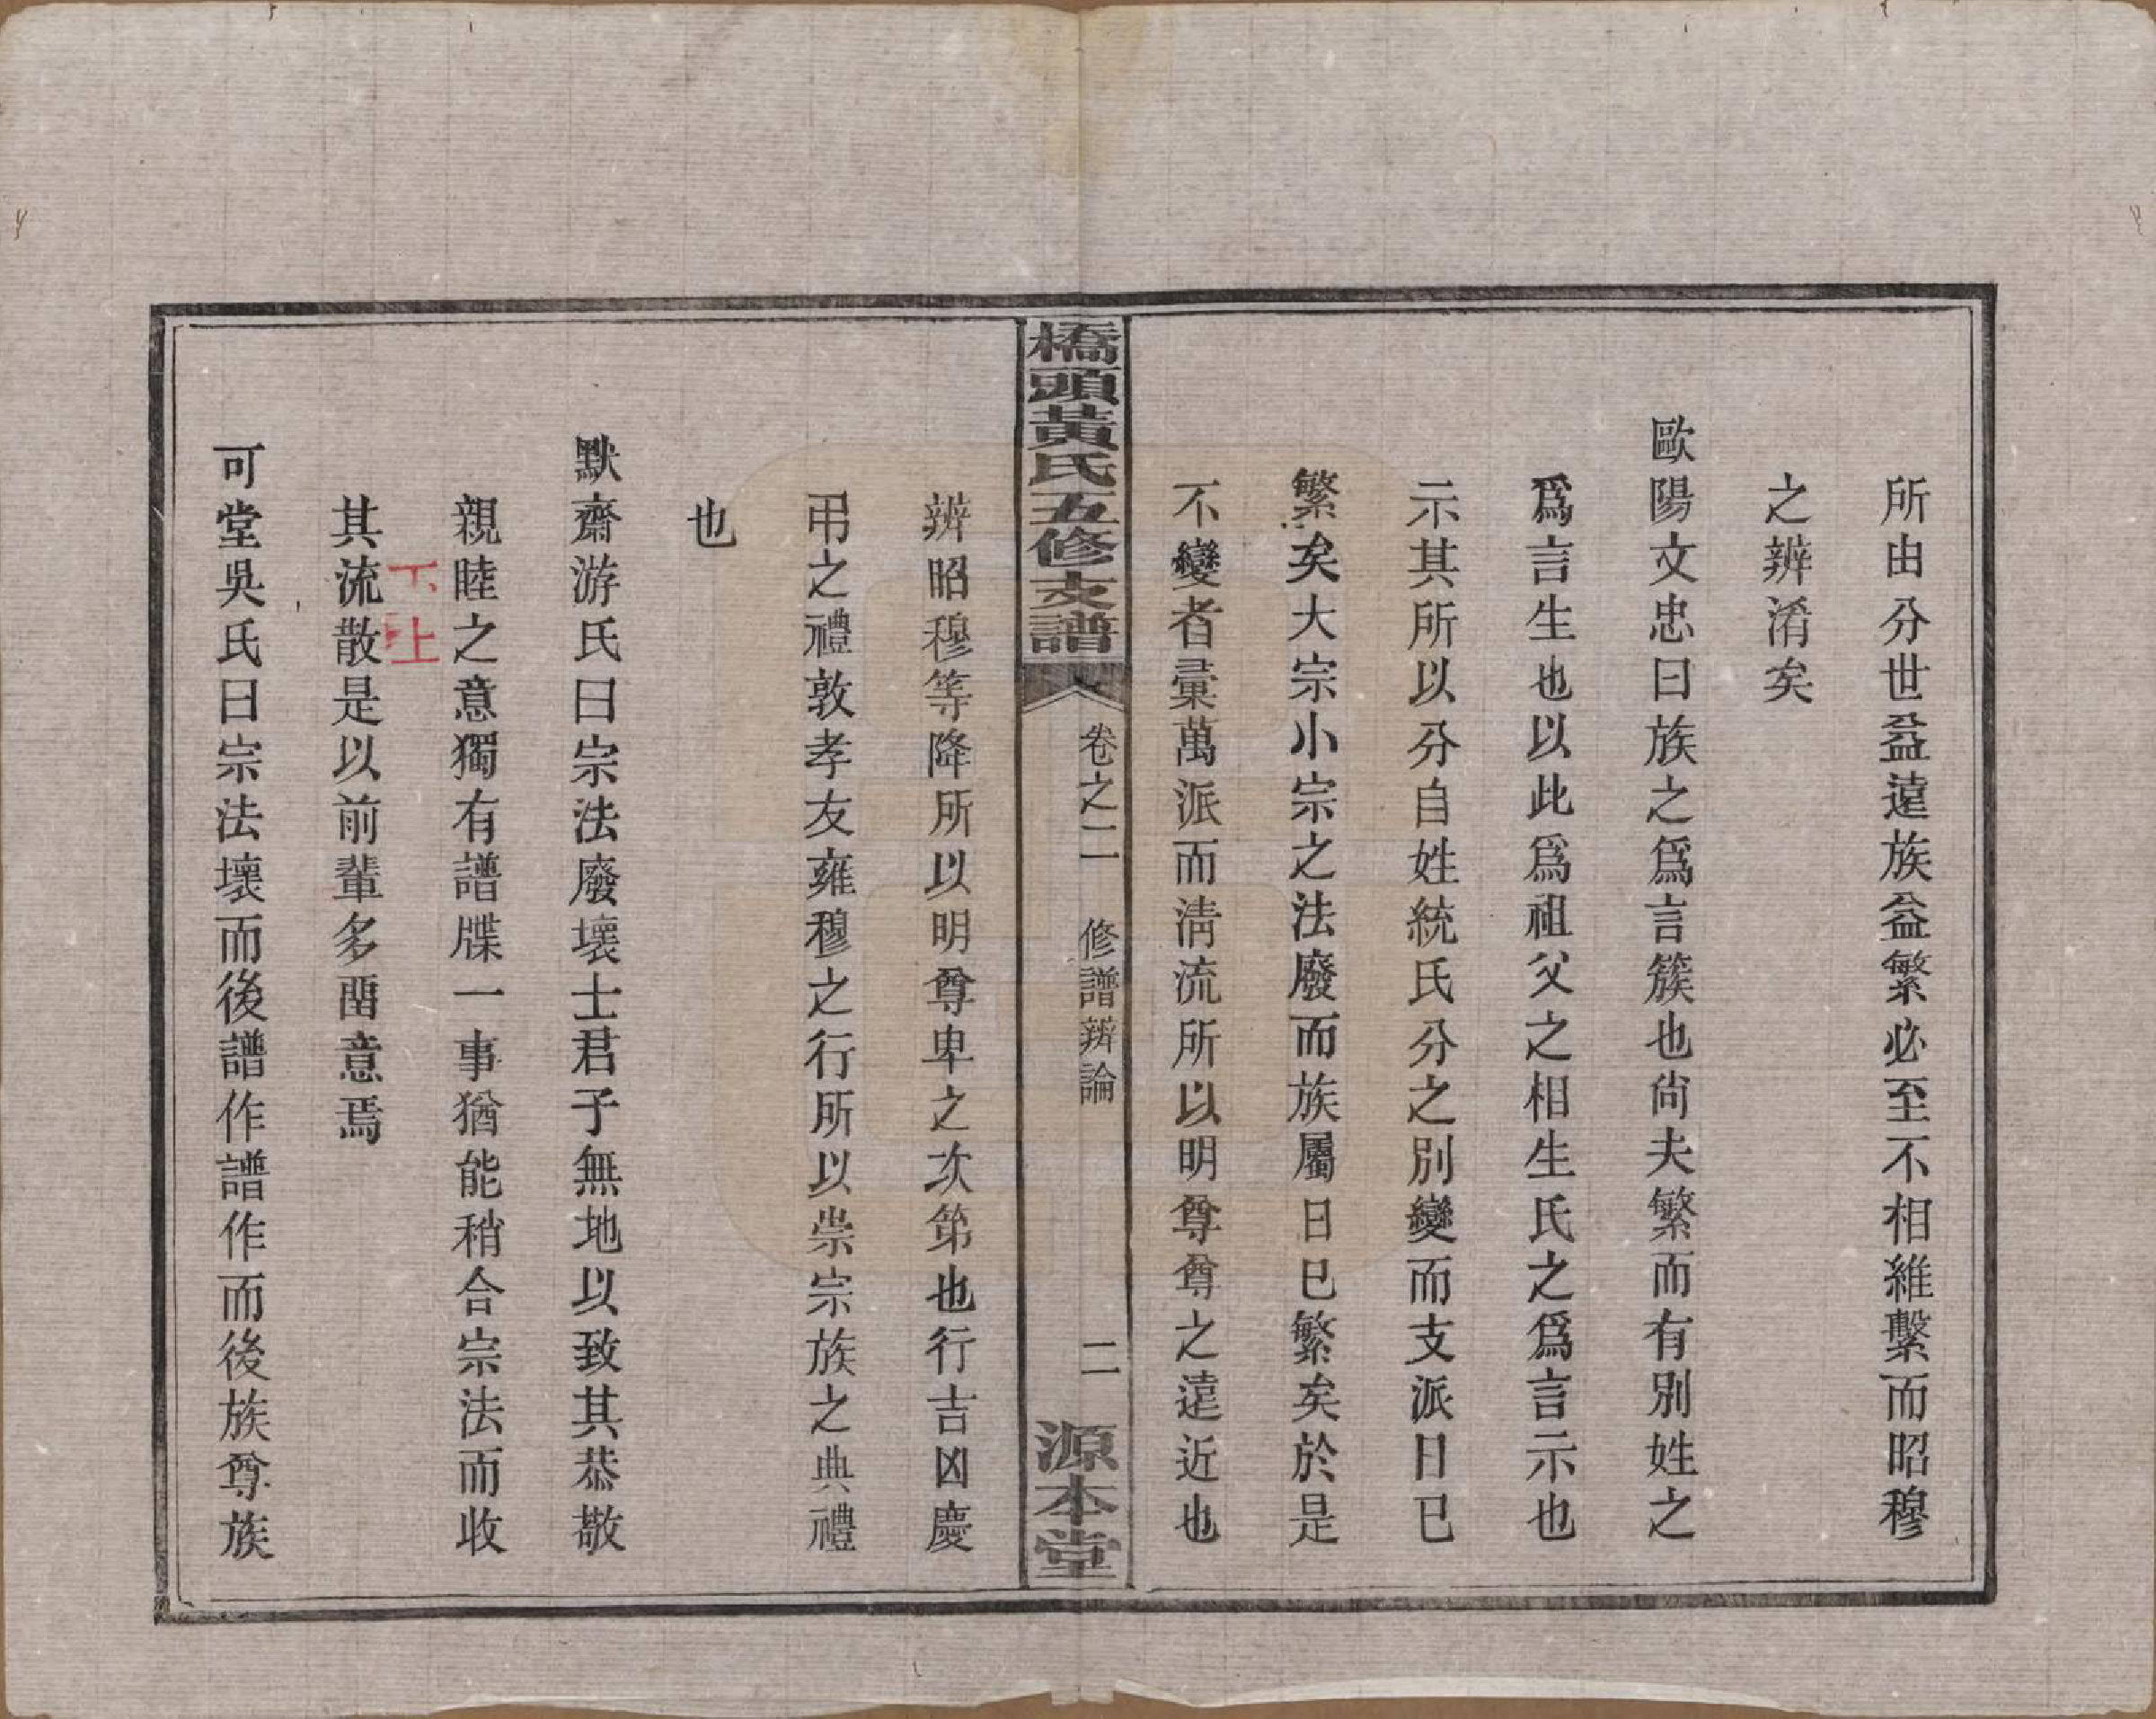 所由分世益遠族益繁必至不相維繫而昭穆
之辨淆矣
歐陽文忠曰族之爲言簇也尙夫繁而有別姓之
爲言生也以此爲祖父之相生氏之爲言示也
示其所以分自姓統氏分之別變而支派日已
繁矣大宗小宗之法廢而族屬日已繁矣於是
不變者彙萬派而淸流所以明尊尊之遠近也
橋頭黃氏五修支譜
卷之二 修譜辨論
二
源本堂
辨昭穆等降所以明尊卑之次第也行吉凶慶
弔之禮敦孝友雍穆之行所以崇宗族之典禮
也
默齋游氏曰宗法廢壞士君子無地以致其恭敬
親睦之意獨有譜牒一事猶能稍合宗法而收
下上
其流散是以前輩多畱意焉
可堂吳氏曰宗法壞而後譜作譜作而後族尊族